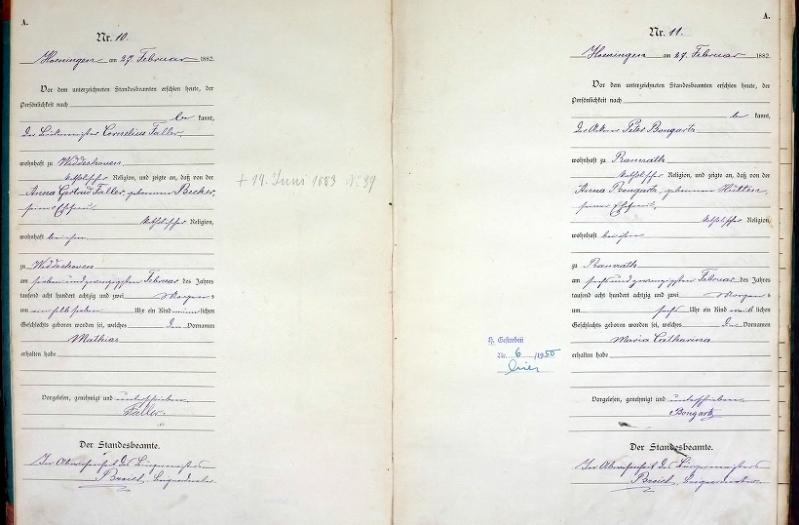 A.
Nr. 10.
Hoeningen am 27. Februar 1882.
Vor dem unterzeichneten Standesbeamten erschien heute, der
Persönlichkeit nach
be kannt,
der Cornelius Faller,
wohnhaft zu Widdeshoven
katholischer Religion, und zeigte an, daß von der
Anna Gertrud Faller, geborenen Becker,
seiner Ehefrau
katholischer Religion,
wohnhaft bei ihm
zu Widdeshoven
am sieben und zwanzigsten Februar des Jahres
tausend acht hundert achtzig und zwei Morgens
um Uhr ein Kind männlichen
Geschlechts geboren worden sei, welches den Vornamen
Mathias
erhalten habe
Vorgelesen, genehmigt und unterschrieben
Faller.
Der Standesbeamte.
In Abwesenheit des Bürgermeisters
Beigeordneter
+ 14. Juni 1883 Nr. 39
A.
Nr. 11.
Hoeningen am 27. Februar 1882.
Vor dem unterzeichneten Standesbeamten erschien heute, der
Persönlichkeit nach
be kannt,
der Ackerer Peter Bongartz
wohnhaft zu Ramrath
katholischer Religion, und zeigte an, daß von der
Anna Bongartz, geborenen Hütten,
seiner Ehefrau,
katholischer Religion,
wohnhaft bei ihm
zu Ramrath
am sechs und zwanzigsten Februar des Jahres
tausend acht hundert achtzig und zwei Morgens
um sechs Uhr ein Kind weiblichen
Geschlechts geboren worden sei, welches die Vornamen
Maria Catharina
erhalten habe
Vorgelesen, genehmigt und unterschrieben
Bongartz
Der Standesbeamte.
In Abwesenheit des Bürgermeisters
Beigeordneter
Nr. 6 /1950